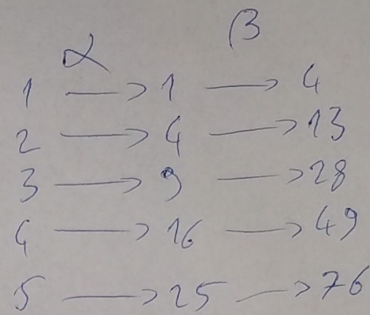 α β
1 → 1 → 4
2 → 4 → 13
3 → 9 → 28
4 → 16 → 49
5 → 25 → 76